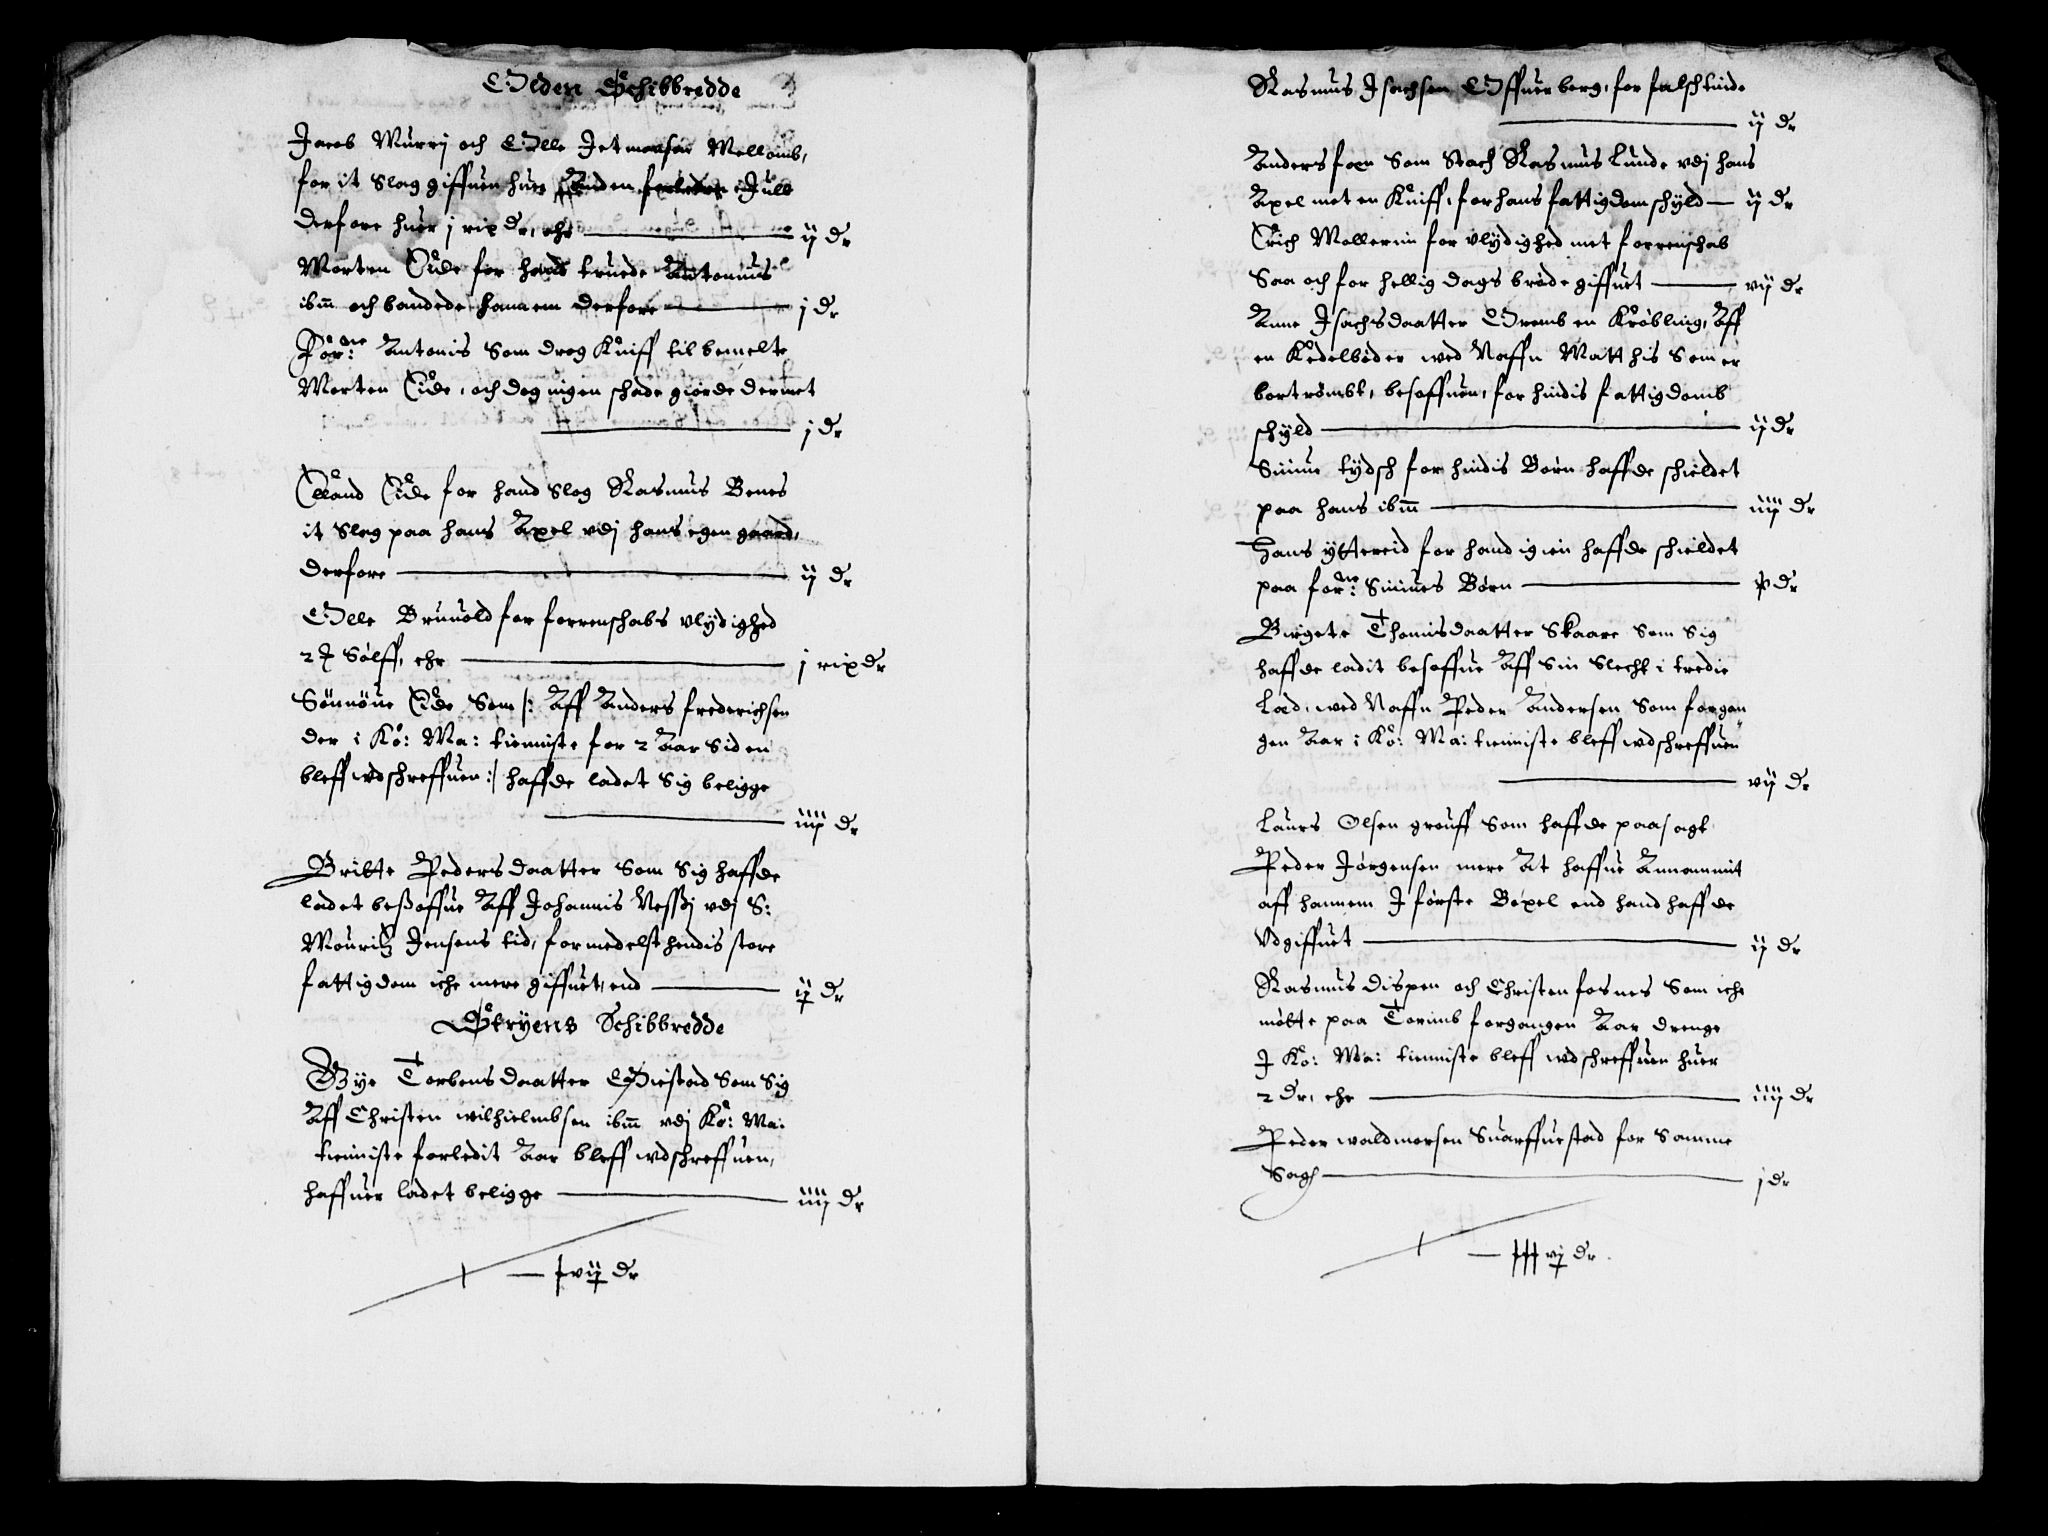 Olden Schibbredde
Jacob Murrj och Olle Jetmonsøn Mellomb,
for it slag giffuen huer Anden forleden Jull
derfore huer j rix dr, ehr — ij dr
Morten Eide for hand truede Antonius
ibm och bandede hannem derfore — j dr
For:ne Antonis som drog Kniff til bemelte
Morten Eide, och dog ingen schade giorde dermet
— j dr
Elland Eide for hand slog Rasmus Benes
it slag paa hans Axel vdj hans egen gaard,
derfore — ij dr
Olle Brunold for forrenschabs vlydighed
2 Sølff, ehr — j rix dr
Sönnöue Eide som /: Aff Anders frederichsen
der i Ko: Ma: tienniste for 2 Aar siden
bleff wdschreffuen :/ haffde ladet sig beligge
— iiij dr
Britte Pedersdaatter som sig haffde
ladet beßoffue Aff Johannis Neßj vdj S:
Mouritz Jensens tid, formedelst hendis store
fattigdom iche mere giffuet, end — ij dr
Stryens Schibbredde
Gye Torbensdaatter Opiestad som sig
Aff Christen wilhielmbsen ibm vdj Ko: Ma:
tienniste forledit Aar bleff wdschreffuen,
haffuer ladet beligge — iiij dr
— xvij dr
Rasmus Jsachsen Offuerberg, for falsch tiide
— ij dr
Anders foen som stach Rasmus Lunde vdj hans
Axel met en Kniff, for hans fattigdom schyld — ij dr
Erich Mollerim for vlydighed met forrenschab
Saa och for hellig dags brøde giffuet — vij dr
Anne Jsachsdaatter Gremb en Krøbling, Aff
en Kedelbøder wed Naffn Matthis som er
bortrømbt, besoffuen, for hindis fattigdomb
schyld — ij dr
Sinnue tydsch for hindis Børn haffde schieldet
paa hans ibm — iiij dr
Hans yttereid for hand igien haffde schieldet
paa for:ne Sinnues Børn — dr
Birgete Thomisdaatter Skaare som sig
haffde ladit besoffue Aff sin slecht i tredie
Led, wed Naffn Peder Andersen som forgan
gen Aar i Ko: Ma: tienniste bleff wdschreffuen
— vij dr
Laurs Olsen greuff som haffde paasagt
Peder Jørgensen mere At haffue Annammit
aff hannem J første Bexel end hand haffde
Vdgiffuet — ij dr
Rasmus dispen och Christen fosnes som iche
mötte paa Torimb forgangen Aar drenge
J Ko: Ma: tienniste bleff wdschreffuen huer
2 dr, ehr — iiij dr
Peder waldmorsen Suarffuestad for samme
Sag — j dr
— xxxvj dr